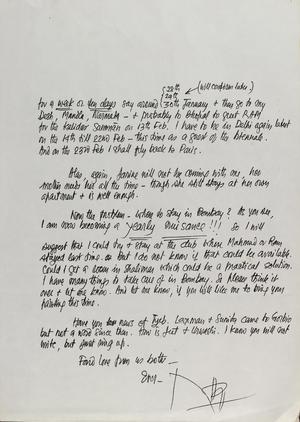 28th
29th (will confirm later)
for a week or ten days say around 30th January + then go to my
Desh, Mandla, Narmada - + probably to Bhopal to greet RAM
for the Kalidas Samman on 13th Feb. I have to be in Delhi again latest
on the 19th till 22nd Feb - this time as a guest of the Biennale.
And on the 23rd Feb I shall fly back to Paris.
Alas, again, Janine will not be coming with me, her
mother needs her all the time - though she still stays at her own
apartment + is well enough.
Now the problem - where to stay in Bombay? As you see,
I am now becoming a yearly nuisance!!! So I will
suggest that I could try + stay at the club where Mahmud or Ram
stayed last time. But I do not know if that could be available.
Could I get a room in Shalimar which could be a practical solution.
I have many things to take care of in Bombay. So please think it
over + let me know. And let me know, if you will like me to bring you
painting this time.
Have you news of Laxman + Sunita came to Gorbio
but not a word since then. How is Jeet + Urvashi. I know you will not
write, but just ring up.
Fond love from us both -